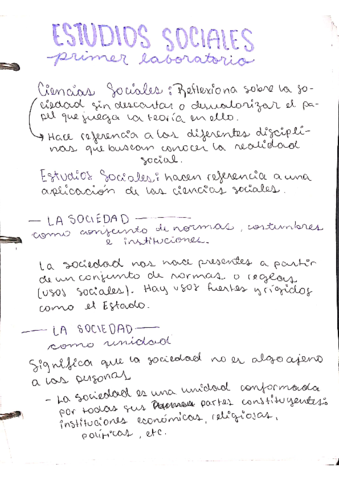 ESTUDIOS SOCIALES
primer laboratorio
Ciencias Sociales: Reflexiona sobre la so-
ciedad sin descartar o desvalorizar el pa-
pel que juega la teoría en ello.
Hace referencia a los diferentes discipli-
nas que buscan conocer la realidad
social.
Estudios Sociales: hacen referencia a una
aplicación de las ciencias sociales.
— LA SOCIEDAD —
como conjunto de normas, costumbres
e instituciones.
La sociedad nos hace presentes a partir
de un conjunto de normas o reglas
(usos sociales). Hay usos fuertes y rígidos
como el Estado.
— LA SOCIEDAD —
como unidad
Significa que la sociedad no es algo ajeno
a las personas
- La sociedad es una unidad conformada
por todas sus partes constituyentes:
instituciones económicas, religiosas,
políticas, etc.